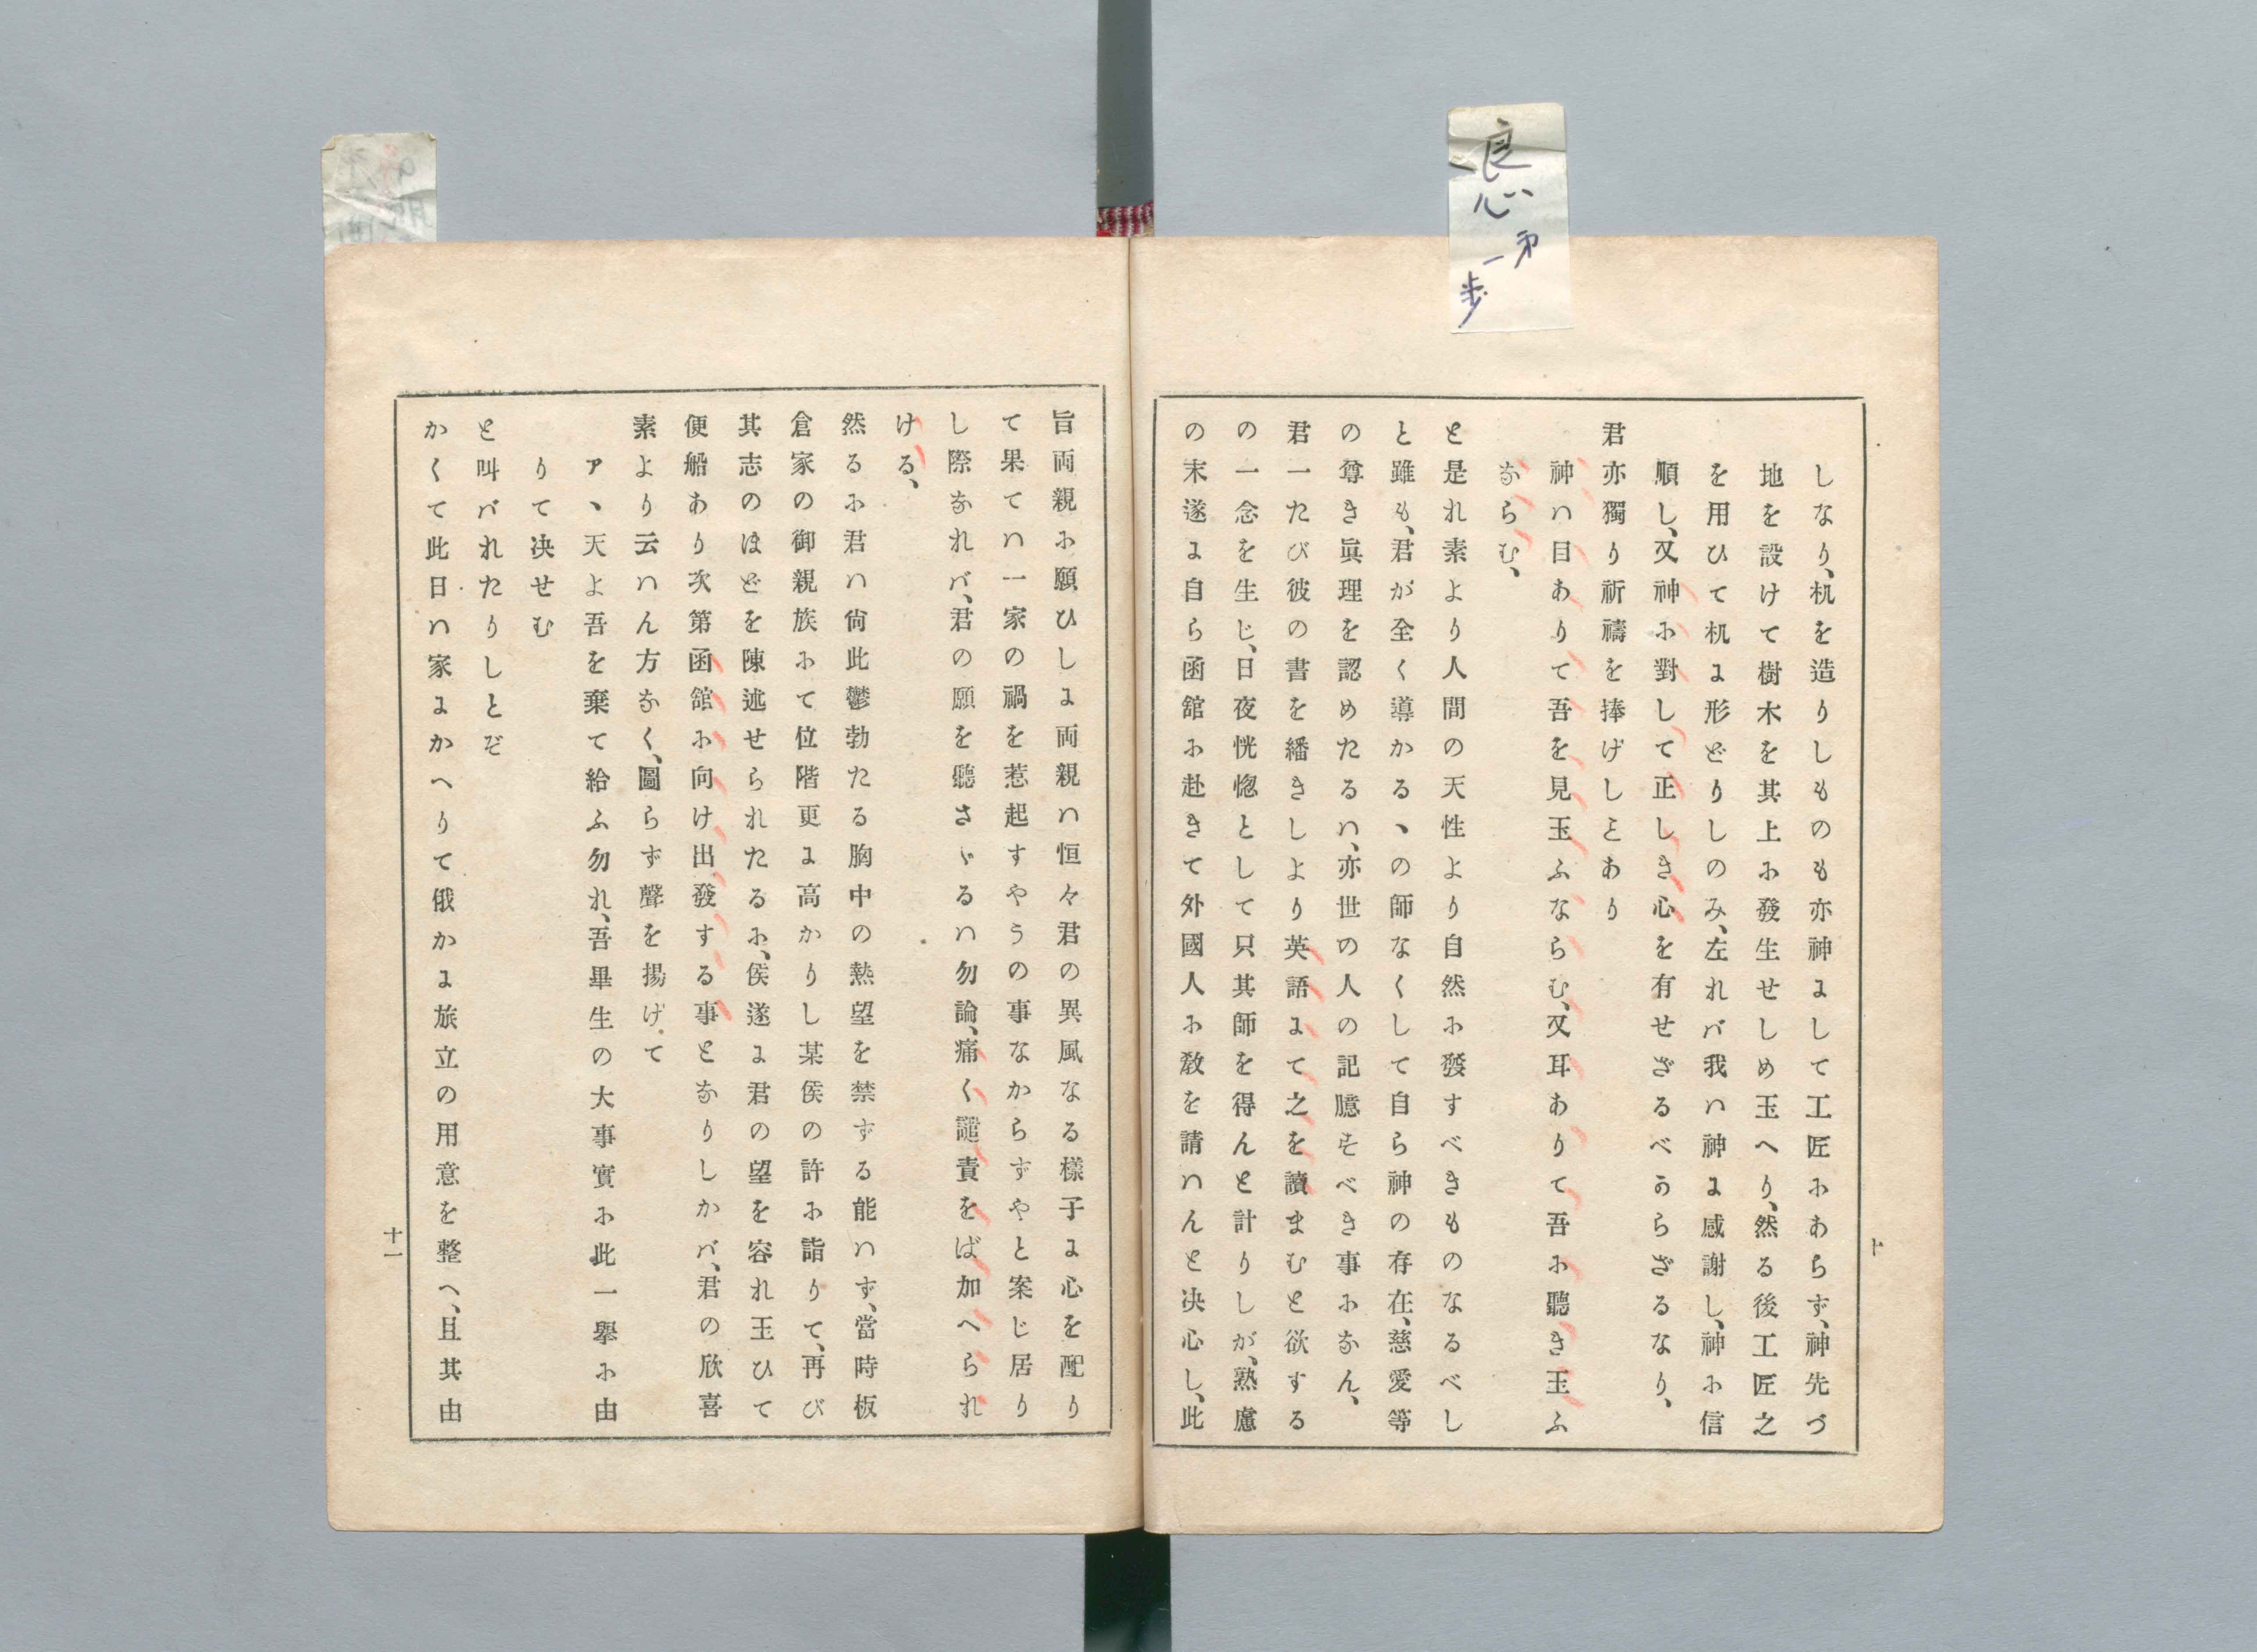 良心
第一
歩
しなり、机を造りしものも亦神よして工匠にあらず、神先づ
地を設けて樹木を其上に發生せしめ玉へり、然る後工匠之
を用ひて机よ形どりしのみ、左れバ我ハ神よ感謝し、神に信
順し、又神に對して正しき心を有せざるべからざるなり、
君亦獨り祈禱を捧げしとあり
神ハ目ありて吾を見玉ふならむ、又耳ありて吾に聽き玉ふ
ならむ、
と是れ素より人間の天性より自然に發すべきものなるべし
と雖も、君が全く導かるヽの師なくして自ら神の存在、慈愛等
の尊き眞理を認めたるハ、亦世の人の記臆すべき事になん、
君一たび彼の書を繙きしより英語よて之を讀まむと欲する
の一念を生じ、日夜恍惚として只其師を得んと計りしが、熟慮
の末遂よ自ら函館に赴きて外國人に敎を請ハんと决心し、此
十
旨両親に願ひしよ両親ハ恒々君の異風なる樣子よ心を配り
て果てハ一家の禍を惹起すやうの事なからずやと案じ居り
し際なれバ、君の願を聽さゞるハ勿論、痛く譴責をば加へられ
ける、
然るに君ハ尙此鬱勃たる胸中の熱望を禁ずる能ハず、當時板
倉家の御親族にて位階更よ高かりし某侯の許に詣りて、再び
其志のほどを陳述せられたるに、侯遂よ君の望を容れ玉ひて
便船あり次第函館に向け出發する事となりしかバ、君の欣喜
素より云ハん方なく、圖らず聲を揚げて
アヽ天よ吾を棄て給ふ勿れ、吾畢生の大事實に此一擧に由
りて决せむ
と叫バれたりしとぞ
かくて此日ハ家よかへりて俄かよ旅立の用意を整へ、且其由
十一